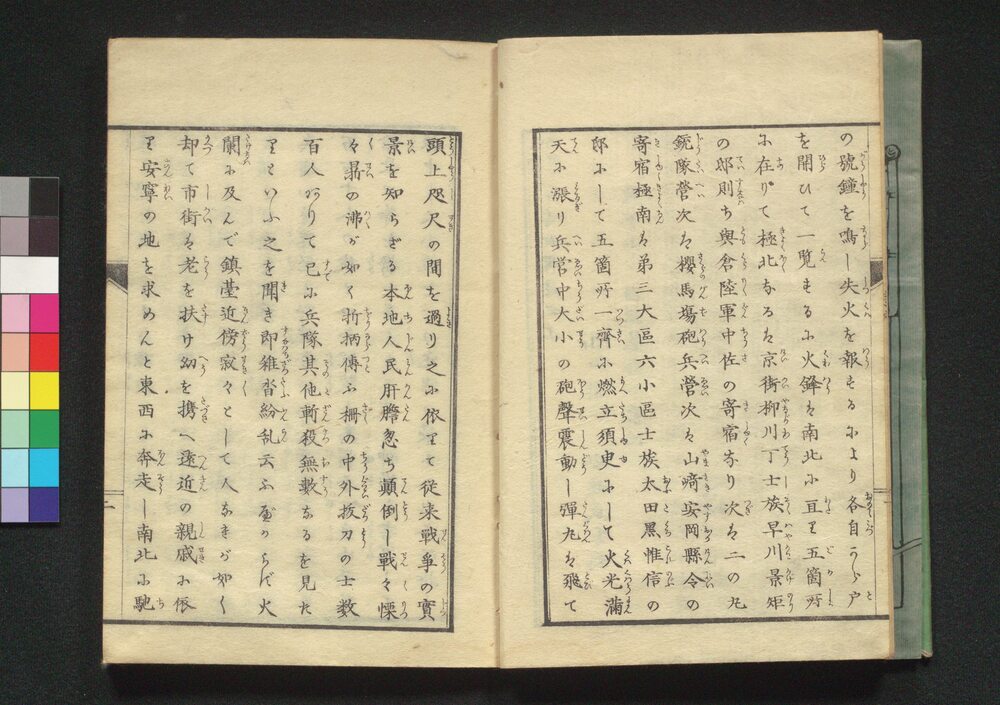 の號鐘を鳴し失火を報ずるにより各自に戸
を開ひて一覧するに火鋒は南北に亘て五箇所
に在りて極北なるは京街柳川丁士族早川景矩
の邸則ち與倉陸軍中佐の寄宿なり次は二の丸
銃隊營次は櫻馬塲砲兵營次は山﨑安岡縣令の
寄宿極南は弟三大區六小區士族太田黒惟信の
邸にして五箇所一齊に燃立須臾にして火光滿
天に漲り兵営中大小の砲聲震動し彈丸は飛て
頭上咫尺の間を過り之に依りて従来戰爭の實
景を知らざる本地人民肝膽忽ち顛倒し戰々慄
々鼎の沸が如く折柄傳ふ柵の中外抜刀の士数
百人ありて已に兵隊其他斬殺無數なるを見た
りといふ之を聞き即雑沓紛乱云ふべからず火
闌に及んで鎮臺近傍寂々として人なきが如く
却て市街は老を扶け幼を携へ遠近の親戚に依
り安寧の地を求めんと東西に奔走し南北に馳